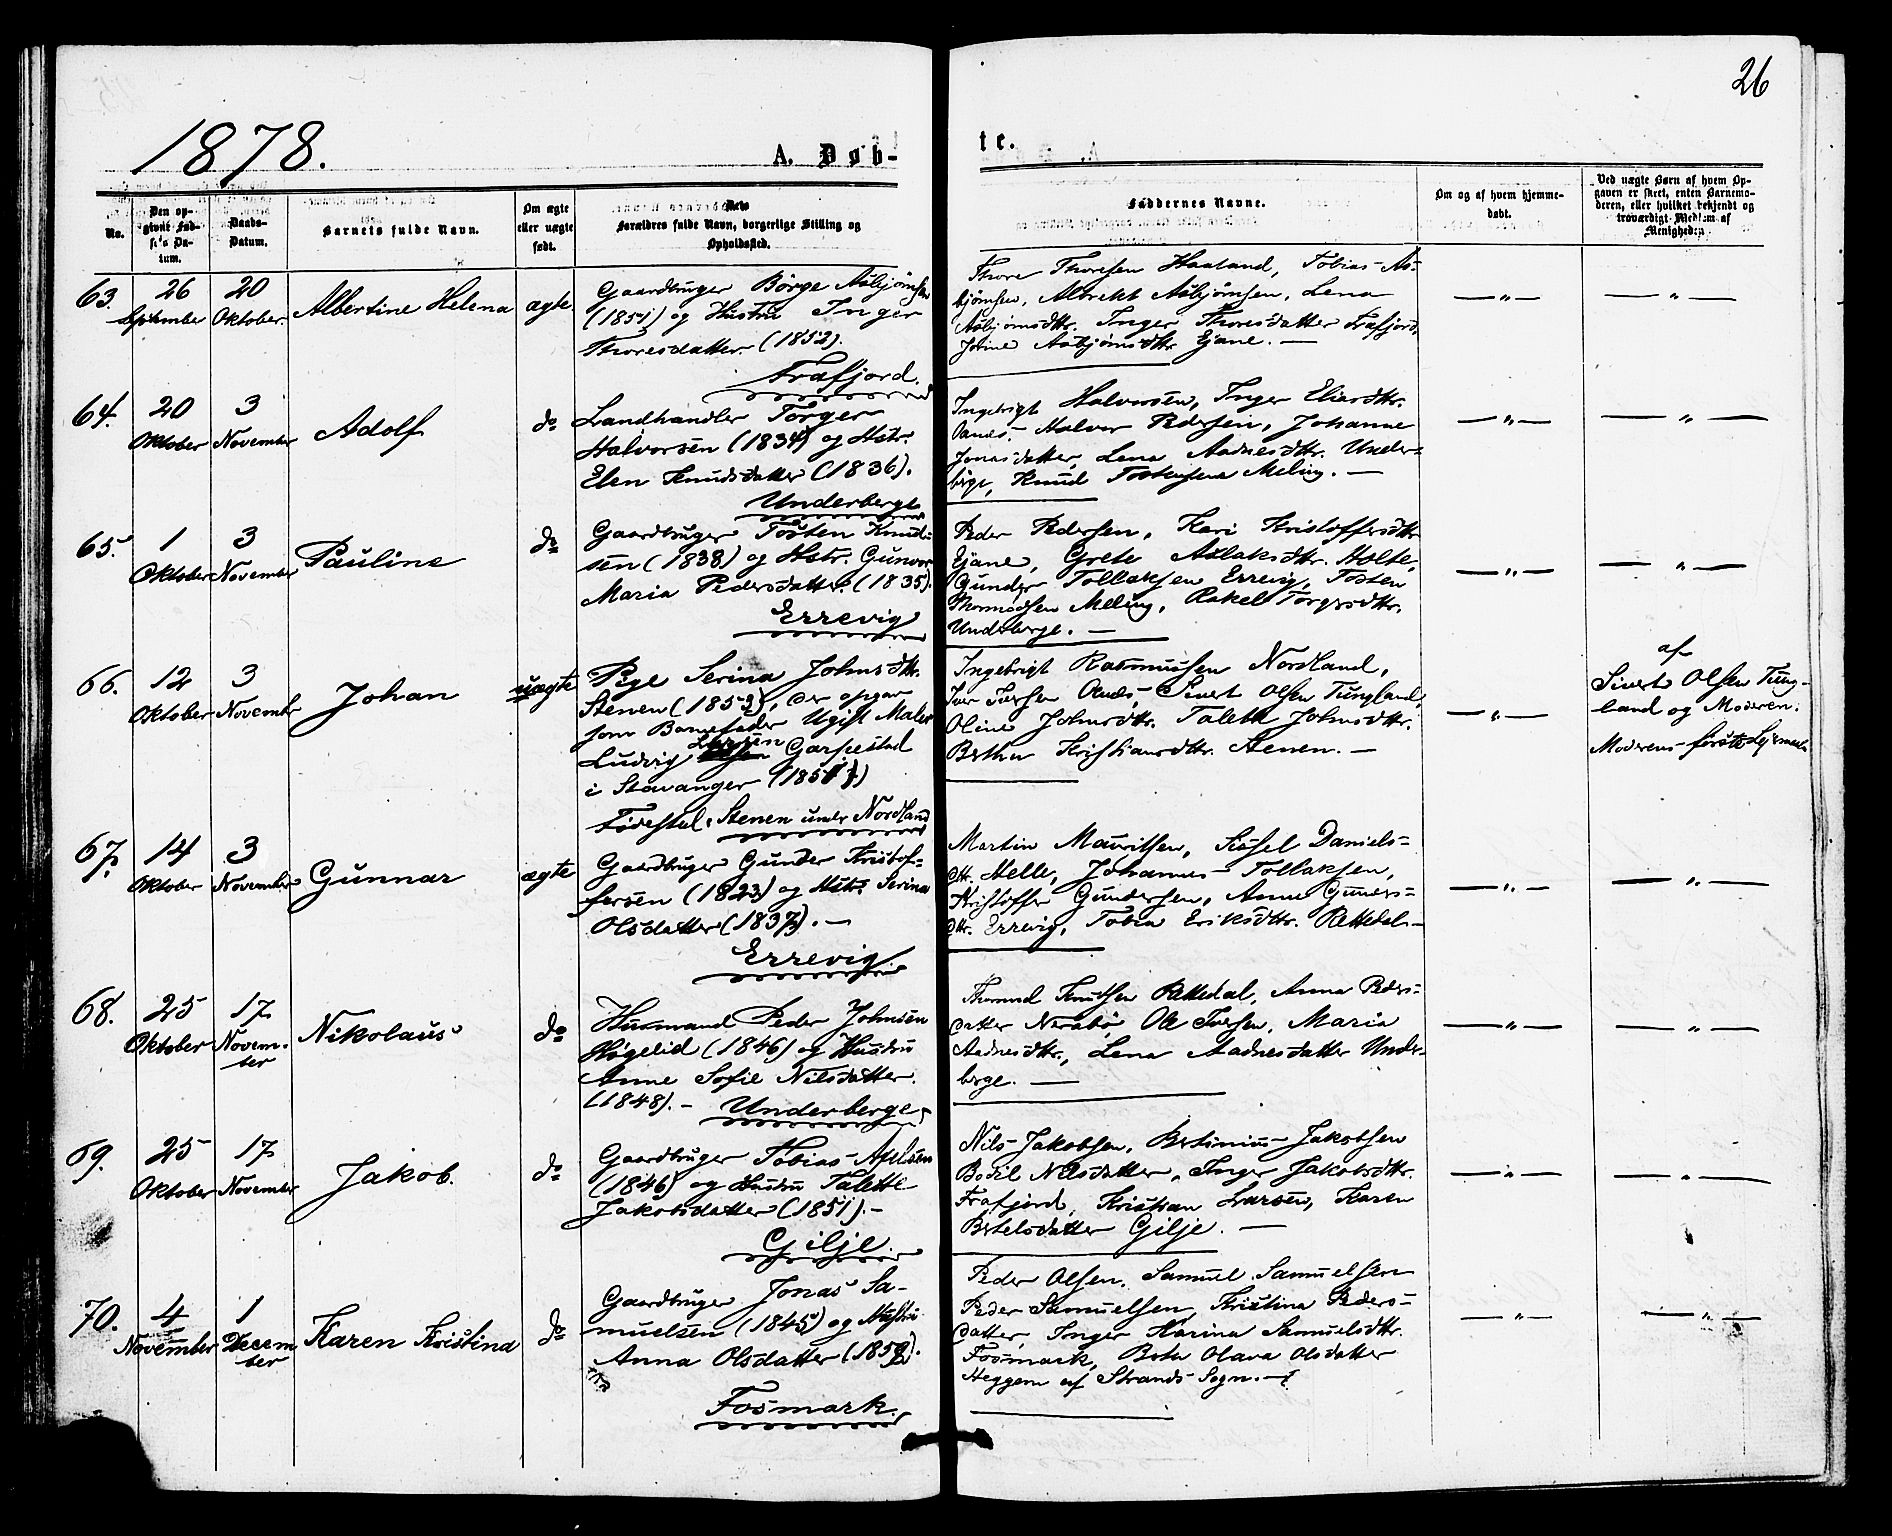 26
1878.
A. Døb-
te.
No.
Den op-
givne Fød-
sels Da-
tum.
Daabs-
Datum.
Barnets fulde Navn.
Om ægte
eller uægte
født.
Forældres fulde Navn, borgerlige Stilling og
Opholdssted.
Faddernes Navne.
Om og af hvem hjemme-
døbt.
Ved uægte Børn af hvem Op-
gaven er skeet, enten Barnemo-
deren, eller hvilket bekjendt og
troværdigt Medlem af
Menigheden
63.
26
September
20
Oktober.
Albertine Helena
ægte
Gaardbruger Børge Asbjørnsen
(1851) og Hustru Inger
Thoresdatter. (1852).
Frafjord.
Thore Thoresen Haaland, Tobias As-
bjørnsen, Albrekt Asbjørnsen, Lena
Asbjørnsdtr. Inger Thoresdatter Frafjord,
Asbjørnsdtr Ejane. —
— " —
— " —
64.
20
Oktober
3
November
Adolf
do
Landhandler Torger
Halvorsen (1834) og Hstr.
Elen Knudsdatter (1836).
Underberge
Ingebrigt Halvorsen, Inger Eliasdtr.
Oanes. Halvor Pedersen, Johanne
Jonasdatter, Lena Aadnesdtr. Under-
berge, Knud Tostensen Meling. —
— " —
— " —
65.
1
Oktober
3
November
Pauline
do
Gaardbruger Tosten Knud-
sen (1838) og Hstr. Gunvor
Maria Pedersdatter. (1835).
Errevig
Peder Pedersen, Kari Kristoffersdtr
Ejane, Grete Aslaksdtr. Holte,
Gunder Tollaksen Errevig, Tosten
Thormodsen Meling, Rakel Torgersdtr.
Underberge. —
— " —
— " —
66.
12
Oktober
3
November
Johan
uægte
Pige Serina Johnsdtr.
Stenen (1853), der opgav
som Barnefader Ugift Maler
Larsen
Ludvig Garpestad
i Stavanger (1851)
Fødested: Stenen under Nordland
Ingebrigt Rasmussen Nordland,
Iver Iversen Oanes, Sivert Olsen Tungland,
Oline Johnsdtr. Taletta Johnsdtr.
Bertha Kristiansdtr. Stenen. —
— " —
af
Sivert Olsen Tung-
land og Moderen.
Moderens første Lejermaal
67.
14
Oktober
3
November
Gunnar
ægte
Gaardbruger Gunder Kristof-
fersen (1823) og Hstr. Serina
Olsdatter (1837). —
Errevig
Martin Mauritsen, Sissel Daniels-
dtr. Helle, Johannes Tollaksen,
Kristoffer Gundersen, Anna Gunders-
dtr. Errevig, Tobia Eriksdtr. Rettedal. —
— " —
— " —
68.
25
Oktober
17
Novem-
ber
Nikolaus
do
Husmand Peder Johnsen
Høgelid (1846) og Hustru
Anne Sofie Nilsdatter.
(1848). — Underberge
Thormod Knutsen Rettedal, Anna Peders-
datter Nerabø, Ole Iversen, Maria
Aadnesdtr., Lena Aadnesdatter Under-
berge. —
— " —
— " —
69.
25
Oktober
17
November
Jakob.
do
Gaardbruger Tobias Axelsen
(1846) og Hustru Talette
Jakobsdatter (1851). —
Gilje.
Nils Jakobsen, Bertinius Jakobsen
Bodil Nilsdatter, Inger Jakobsdtr.
Frafjord, Kristian Larsen, Karen
Bertelsdatter Gilje. —
— " —
— " —
70.
4
November
1
Decem
ber
Karen Kristina
do
Gaardbruger Jonas Sa-
muelsen (1845) og Hustru
Anna Olsdatter (1852).
Fosmark.
Peder Olsen, Samuel Samuelsen
Peder Samuelsen, Kristina Peders-
datter, Inger Karina Samuelsdtr.
Fosmark, Berta Olava Olsdatter
Heggem af Strands Sogn. —
— " —
— " —